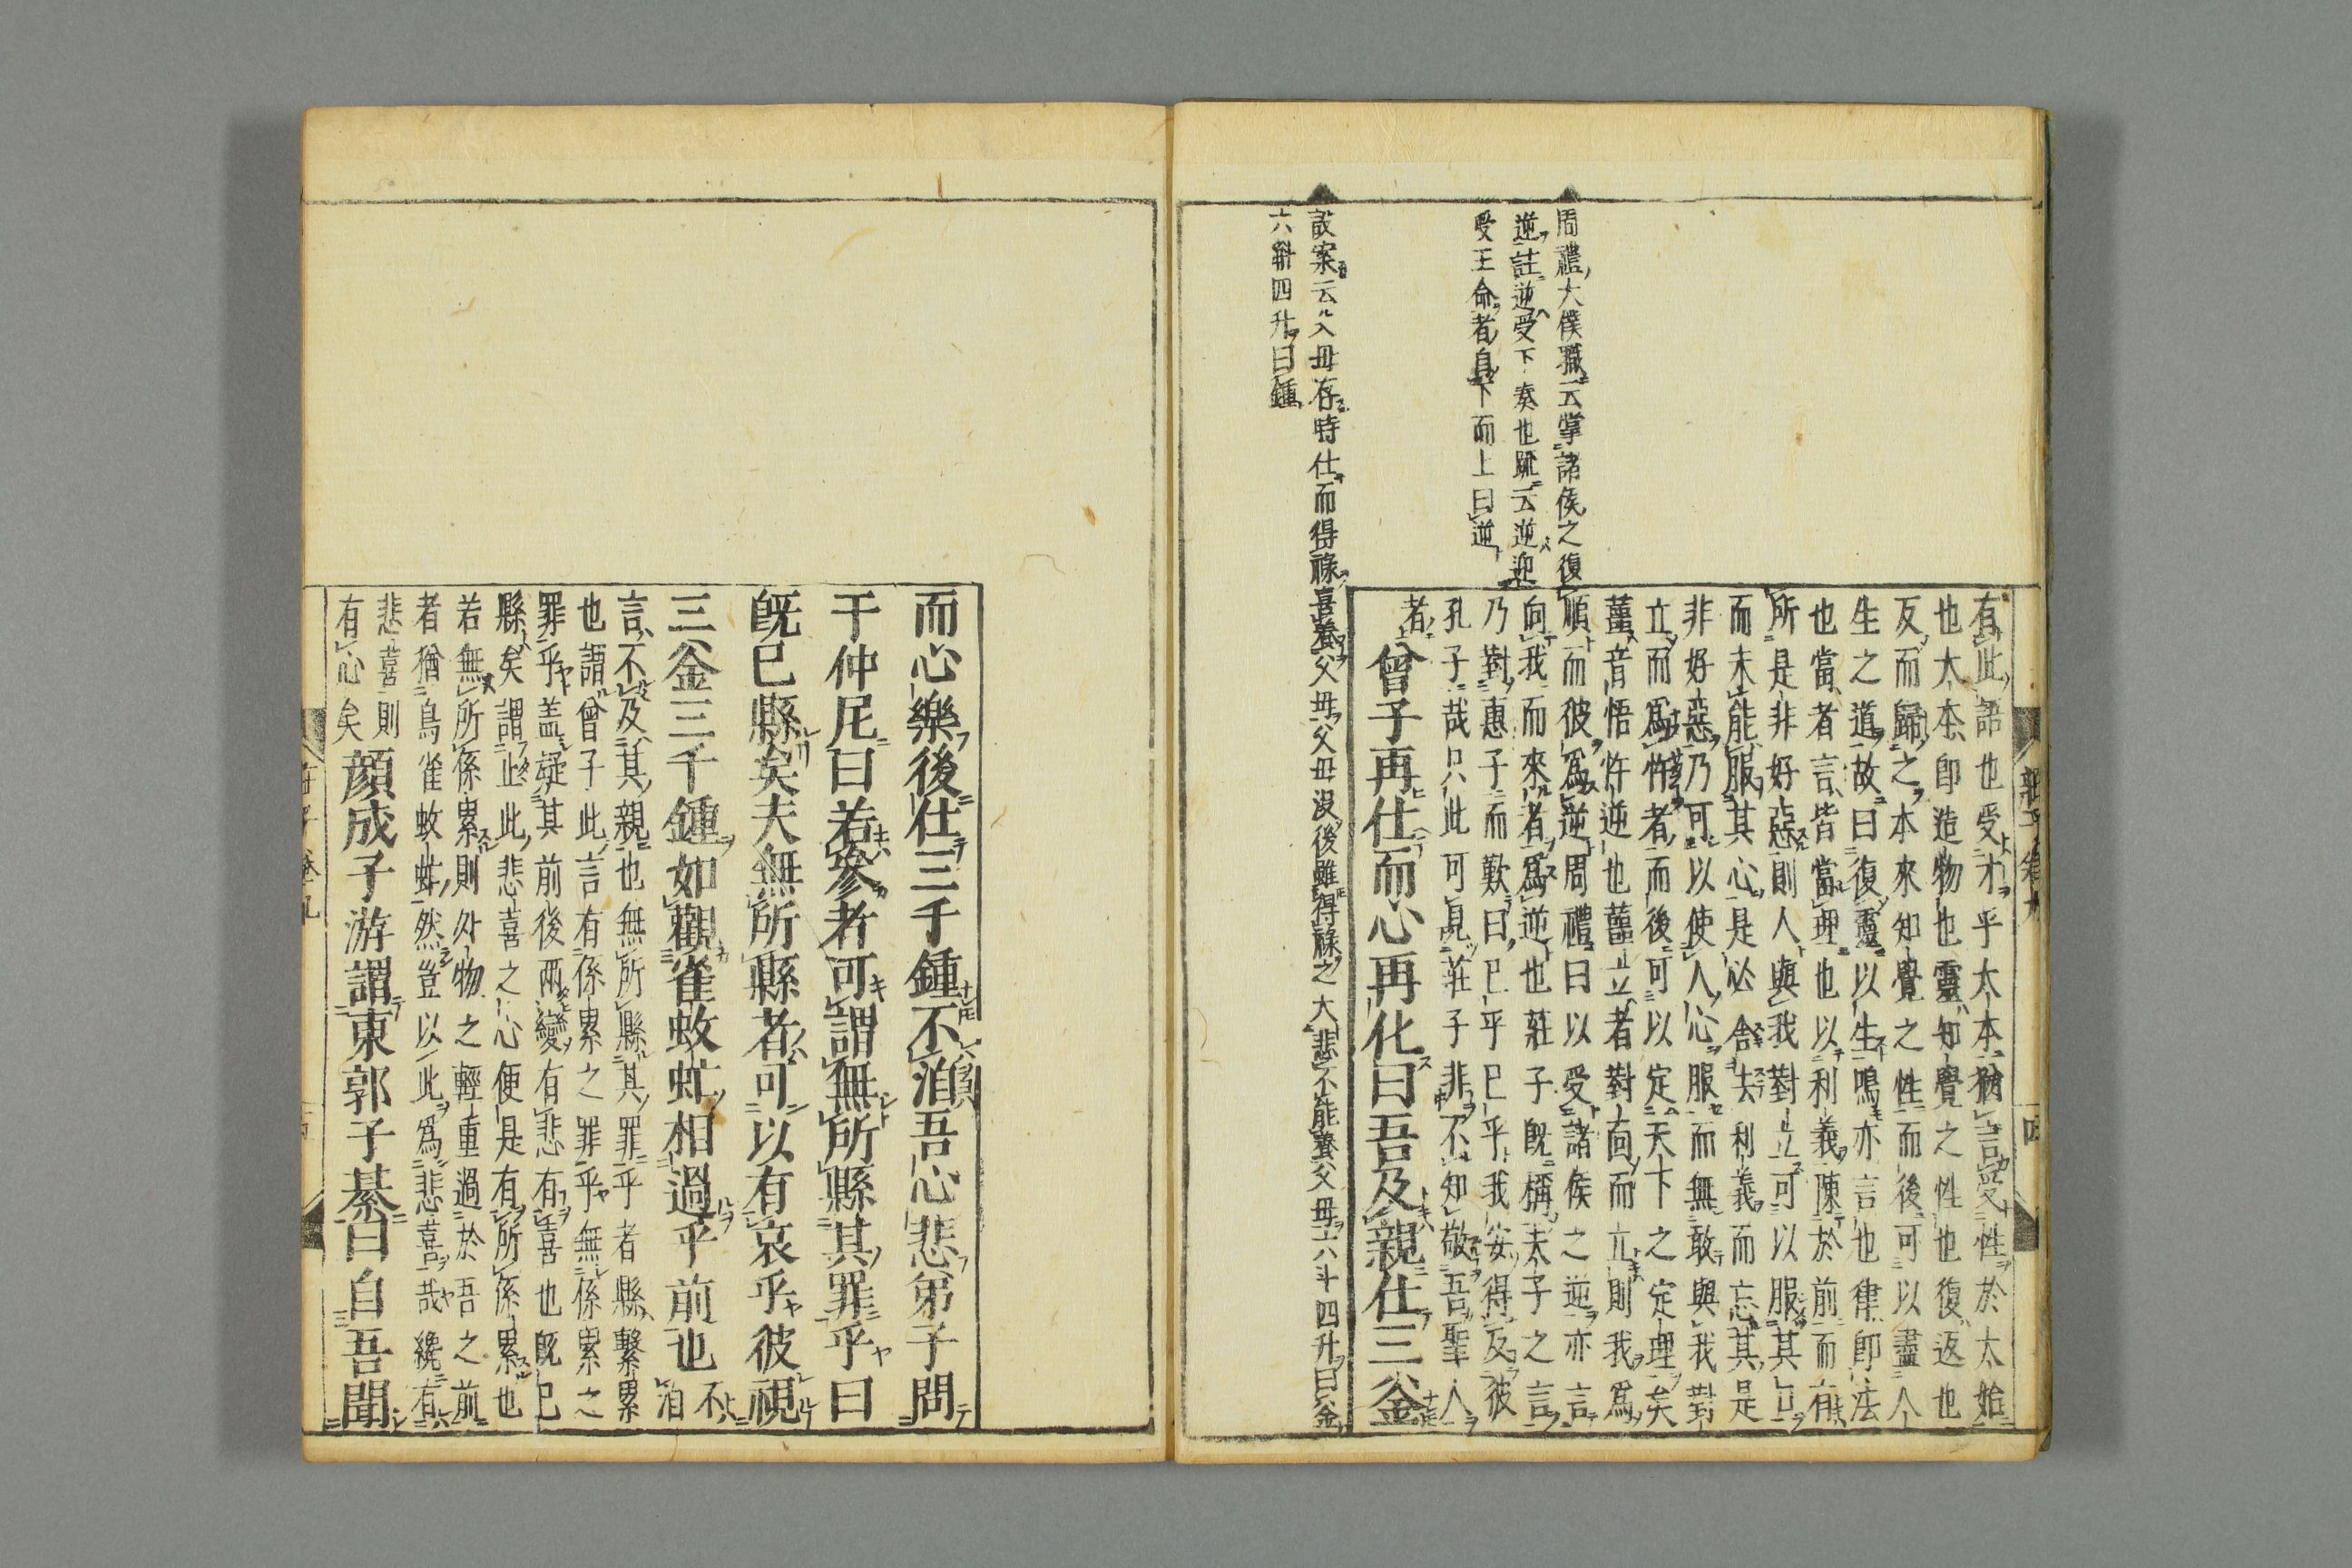 周禮大僕職云掌諸侯之復
逆註逆受下奏也疏云逆迎
受王命者自下而上曰逆
設案云父母存時仕而得祿喜養父母父母没後雖得祿之大悲不能養父母六斗四升曰釜
六斛四斗曰鍾
有此語也受才乎太本猶言受性於太始
也太本即造物也靈知覺之性也復返也
反而歸之本來知覺之性而後可以盡人
生之道故曰復靈以生鳴亦言也律即法
也當者言皆當理也以利義陳於前而有
所是非好惡則人與我對立可以服其口
而未能服其心是必舍去利義而忘其是
非好惡乃可以使人心服而無敢與我對
立而爲忤者而後可以定天下之定理矣
蘁音悟忤逆也蘁立者對面而立則我爲
順而彼爲逆周禮曰以受諸侯之逆亦言
向我而來者爲逆也莊子既稱夫子之言
乃對惠子而歎曰已乎已乎我安得反彼
孔子哉只此可見莊子非不知敬吾聖人
者
曾子再仕而心再化曰吾及親仕三釜
而心樂後仕三千鍾不洎吾心悲弟子問
于仲尼曰若參者可謂無所縣其罪乎曰
既已縣矣夫無所縣者可以有哀乎彼視
三釜三千鍾如觀雀蚊虻相過乎前也不
洎
言不及其親也無所縣其罪乎者縣繫累
也謂曾子此言有係累之罪乎無係累之
罪乎盖疑其前後兩變有悲有喜也既已
縣矣謂止此悲喜之心便是有所係累也
若無所係累則外物之輕重過於吾之前
者猶鳥雀蚊虻然豈以此爲悲喜哉纔有
悲喜則
有心矣
顔成子游謂東郭子綦曰自吾聞